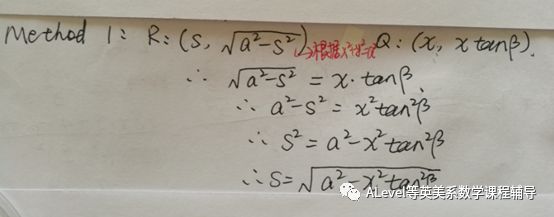 Method 1: R: (S, √(a²-S²)) →根据x²+y²=a² Q: (x, x tanβ).
∴ √(a²-S²) = x·tanβ
∴ a²-S² = x²tan²β
∴ S² = a²-x²tan²β
∴ S = √(a²-x²tan²β)
ALevel等英美系数学课程辅导